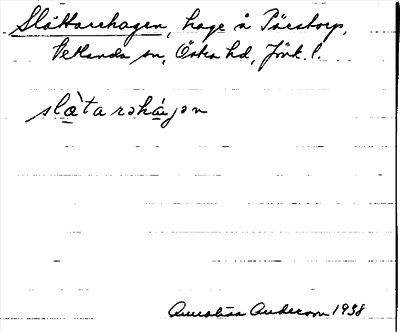 Slåttarehagen, hage å Pärstorp,
Vetlanda sn, Östra hd, Jönk. l.
slæ̀tarəhájən
Annalisa Anderson 1938